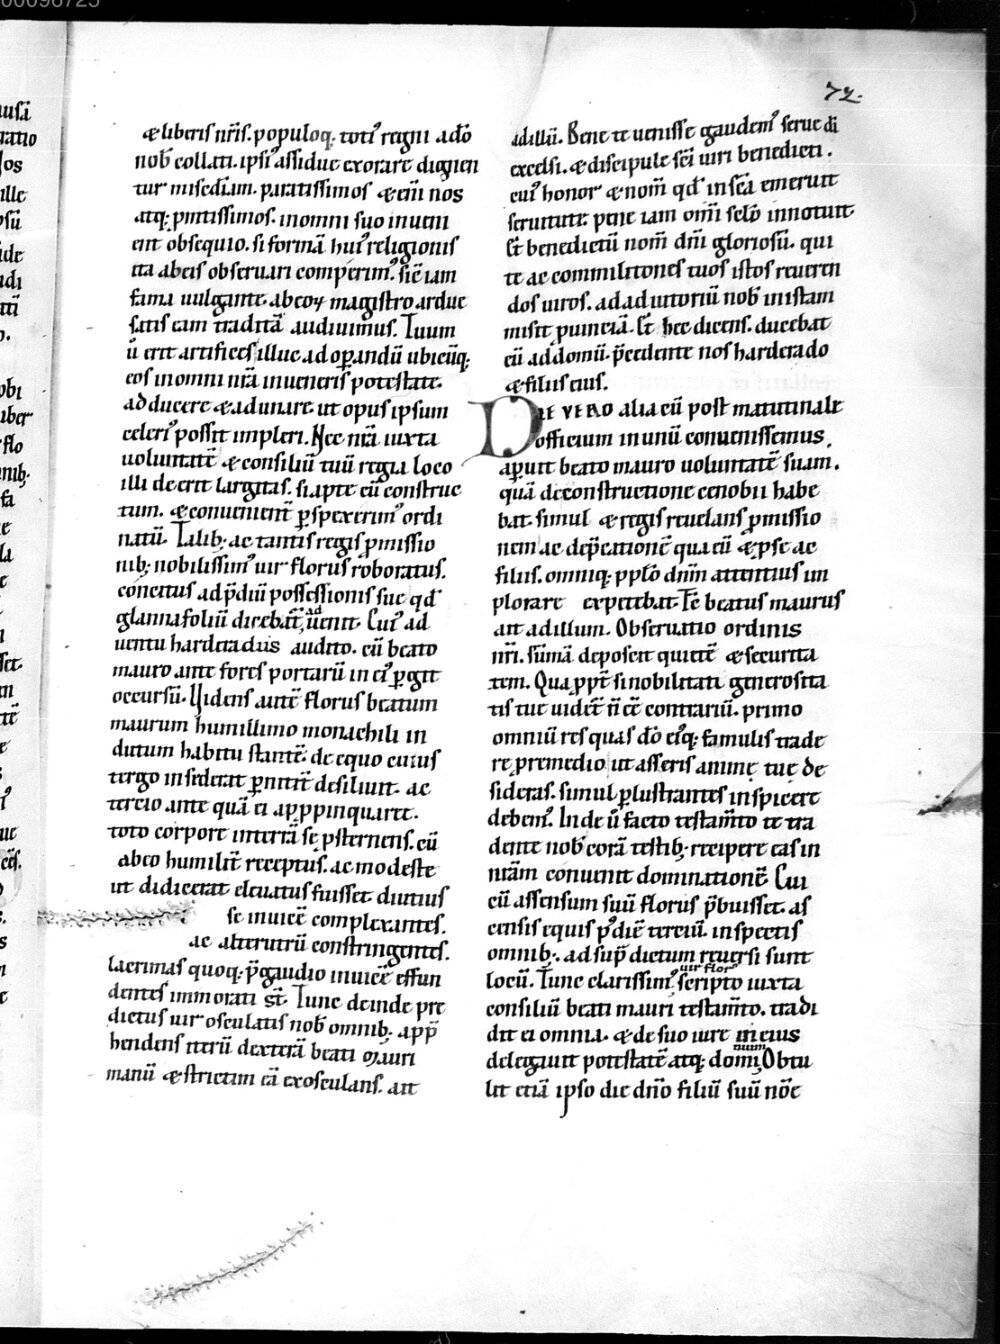 72.
& liberis nr̄is. populoq; toti᷒ regni a dō
nob̄ collati. ipsi᷒ assidue exorare dignen
tur mis̄c̄diam. paratissimos & eni᷒ nos
atq; p̄mtissimos. inomni suo inueni
ent obsequio. si formā hui᷒ religionis
ita abeis obseruari comperim᷒. sic̄ iam
fama uulgante. abeoꝝ magistro ardue
satis eam traditā audiuimus. Tuum
ū erit artifices illuc ad opandū ubicūq;
eos inomni nr̄a inueneris potestate.
adducere & adunare. ut opus ipsum
celeri᷒ possit impleri. Nec nr̄a iuxta
uoluntatē & consiliū tuū regia loco
illi deerit largitas. si apte eū construc
tum. & conuenient̄ p̱spexerim᷒ ordi
natū. Talib; ac tantis regis p̱missio
nib; nobilissim᷒ uir florus roboratus.
concitus ad p̄diū possessionis sue qd̄
glannafoliū dicebat᷒, ad uenit. Cui᷒ ad
uentu harderadus audito. cū beato
mauro ante fores portarū in ei᷒ p̱git
occursū. Uidens autē florus beatum
maurum humillimo monachili in
dutum habitu stantē. de equo cuius
tergo insederat p̱nicit̄ desiliuit. ac
tercio ante quā ei app̱pinquaret.
toto corpore interrā se p̱sternens. cū
abeo humilit̄ receptus. ac modeste
ut didicerat eleuatus fuisset. diutius
se inuicē complexantes.
ac alterutrū constringentes.
lacrimas quoq; p̄ gaudio inuicē effun
dentes immorati st̄. Tunc deinde pre
dictus uir osculatis nob̄ omnib; app̄
hendens iterū dexterā beati mauri
manū & strictim eā exosculans. ait
ad illū. Bene te uenisse gaudem᷒ serue dī
excelsi. & discipule sc̄i uiri benedicti.
cui᷒ honor & nom̄ qd̄ in sc̄a emeruit
seruitute pene iam om̄i sclō innotuit.
Et benedictū nom̄ dn̄i gloriosū. qui
te ac commilitones tuos istos reueren
dos uiros. ad adiutoriū nob̄ in istam
misit p̱uinciā. Et hec dicens. ducebat
eū ad domū. p̄cedente nos harderado
& filiis eius.
DIE VERO alia cū post matutinale
officium in unū conuenissemus.
ap̱uit beato mauro uoluntatē suam.
quā de constructione cenobii habe
bat. simul & regis reuelans p̱missio
nem ac dep̄cationē qua eū & p̱ se ac
filiis. omniq; pp̱lo dn̄m attentius im
plorare expetebat. Tc̄ beatus maurus
ait ad illum. Obseruatio ordinis
nr̄i. sūmā deposcit quietē & securita
tem. Qua ppt̄ si nobilitati generosita
tis tue uidet᷒ n̄ ēē contrariū. primo
omniū res quas dō ei᷒q; famulis trade
re p̱ remedio ut asseris animę tuę de
sideras. simul p̱lustrantes inspicere
debem᷒. Inde ū facto testam̄to te tra
dente nob̄ corā testib; recipere eas in
nr̄am conuenit dominationē. Cui
cū assensum suū florus p̄buisset. as
censis equis p̱ diē terciū. inspectis
omnib;. ad sup̱dictum reuersi sunt
locū. Tunc clarissim᷒ uir flor᷒ scripto iuxta
consiliū beati mauri testam̄to. tradi
dit ei omnia. & de suo iure in eius
delegauit potestatē atq; dom̄inium. Obtu
lit etiā ipso die dn̄o filiū suū nōe